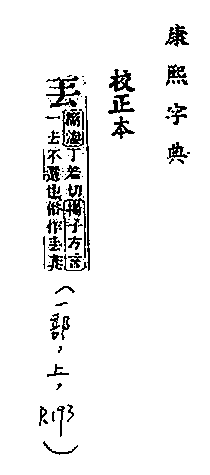 康熙字典
校正本
丟
丁羞切揚子方言
一去不還也俗作丟非
(一部,上,
P.193)